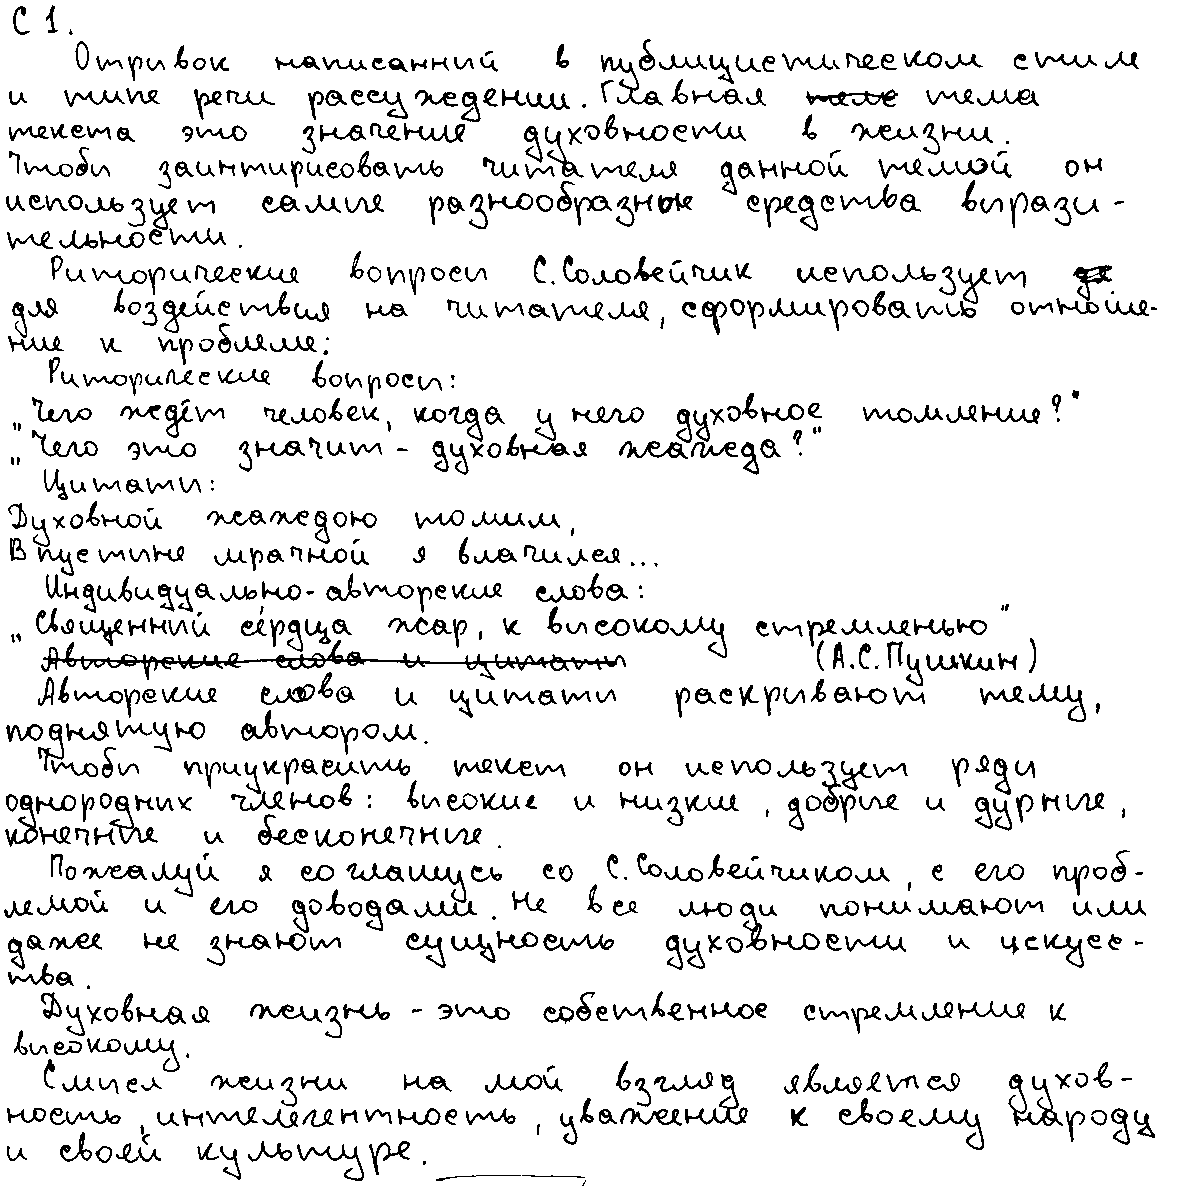 С 1.
Отрывок написанный в публицистическом стиле
и типе речи рассуждении. Главная теме тема
текста это значение духовности в жизни.
Чтобы заинтирисовать читателя данной темой он
использует самые разнообразные средства вырази-
тельности.
Риторические вопросы С.Соловейчик использует
для воздействия на читателя, сформировать отноше-
ние к проблеме:
Риторические вопросы:
„Чего ждёт человек, когда у него духовное томление?"
„Чего это значит - духовная жажда?"
Цитаты:
Духовной жаждою томим,
В пустыне мрачной я влачился...
Индивидуально-авторские слова:
„Священный сердца жар, к высокому стремленью"
Авторские слова и цитаты (А.С.Пушкин)
Авторские слова и цитаты раскрывают тему,
поднятую автором.
Чтобы приукрасить текст он использует ряды
однородных членов: высокие и низкие, добрые и дурные,
конечные и бесконечные.
Пожалуй я соглашусь со С.Соловейчиком, с его проб-
лемой и его доводами. Не все люди понимают или
даже не знают сущность духовности и искусс-
тва.
Духовная жизнь - это собственное стремление к
высокому.
Смысл жизни на мой взгляд является духов-
ность, интелегентность, уважение к своему народу
и своей культуре.